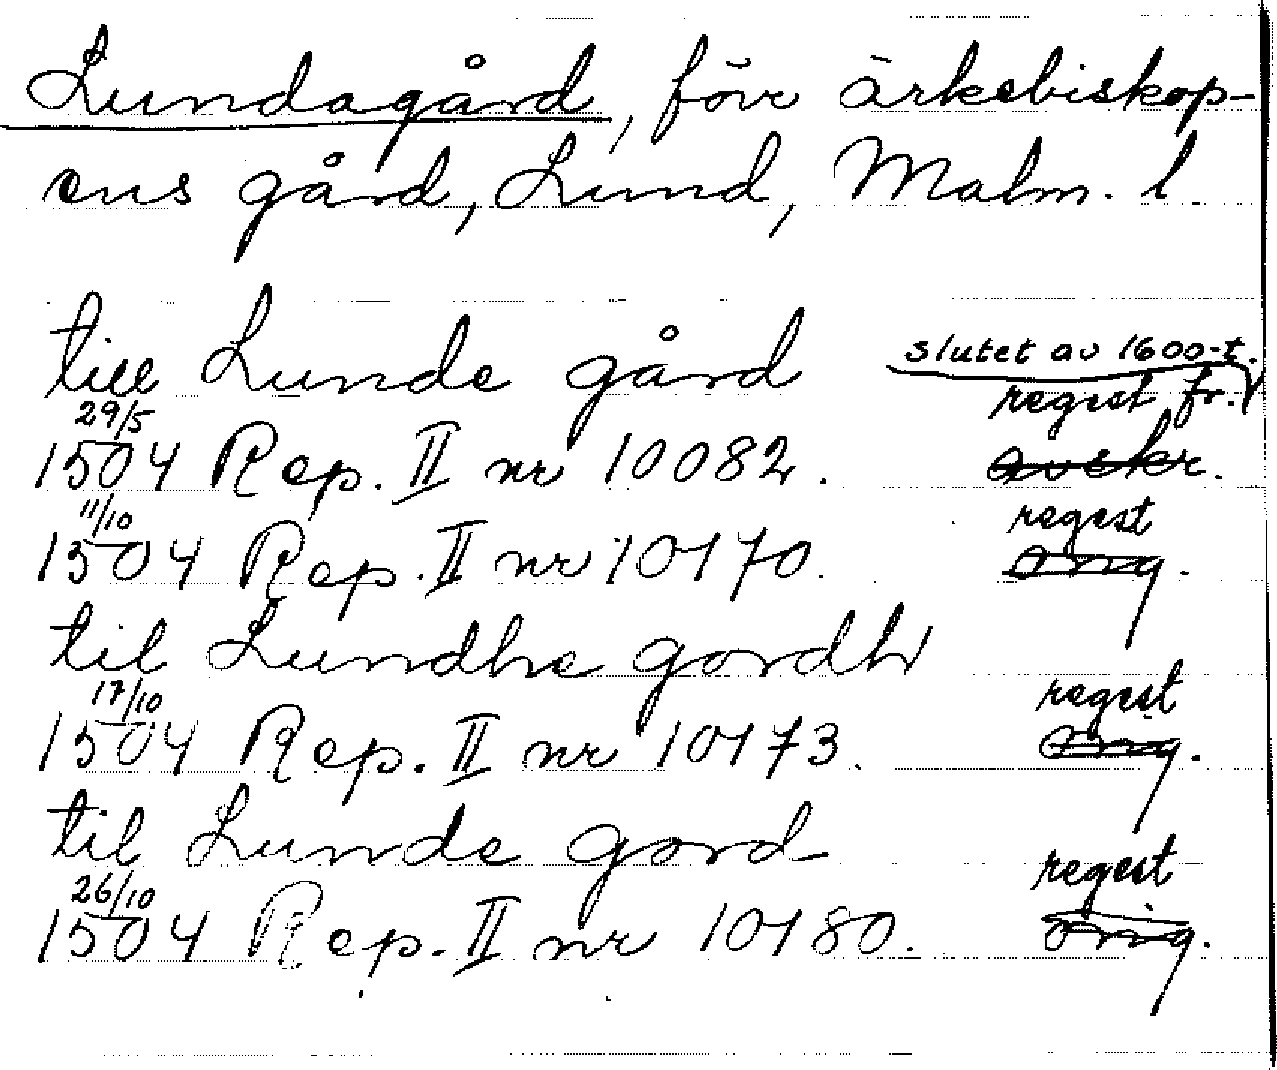 Lundagård, förr ärkebiskop-
ens gård, Lund, Malm. l.
till Lunde gård
slutet av 1600-t.
regest fr.
29/5
1504 Rep. II nr 10082. avskr.
11/10
regest
1504 Rep. II nr 10170. orig.
til Lundhe gordh
17/10
regest
1504 Rep. II nr 10173. orig.
til Lunde gord
26/10
regest
1504 Rep. II nr 10180. orig.